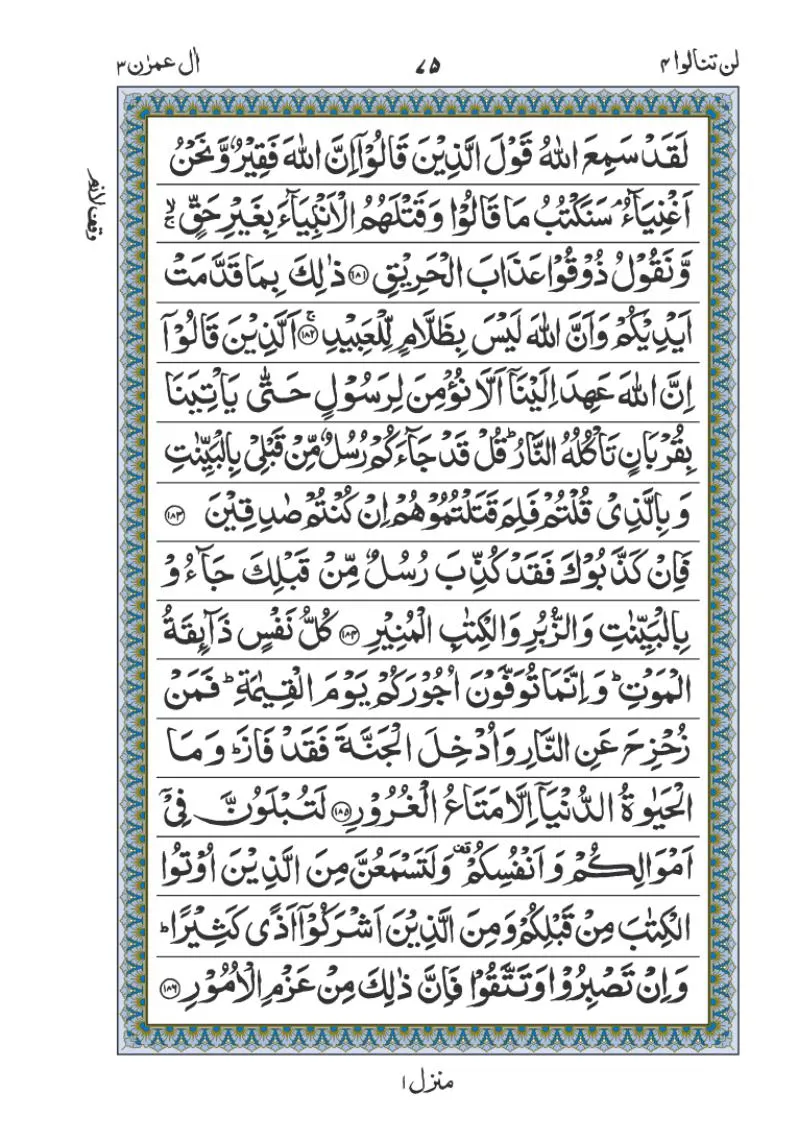 لن تنالوا ۴
۷۵
اٰل عمرٰن ۳
لَقَدۡ سَمِعَ اللّٰهُ قَوۡلَ الَّذِيۡنَ قَالُوۡۤا اِنَّ اللّٰهَ فَقِيۡرٌ وَّنَحۡنُ
اَغۡنِيَآءُ‌ۘ سَنَكۡتُبُ مَا قَالُوۡا وَقَتۡلَهُمُ الۡاَنۡۢبِيَآءَ بِغَيۡرِ حَقٍّ ۙۚ
وَّنَقُوۡلُ ذُوۡقُوۡا عَذَابَ الۡحَرِيۡقِ ﴿۱۸۱﴾ ذٰلِكَ بِمَا قَدَّمَتۡ
اَيۡدِيۡكُمۡ وَاَنَّ اللّٰهَ لَيۡسَ بِظَلَّامٍ لِّلۡعَبِيۡدِ‌ۚ ﴿۱۸۲﴾ اَلَّذِيۡنَ قَالُوۡۤا
اِنَّ اللّٰهَ عَهِدَ اِلَيۡنَاۤ اَلَّا نُؤۡمِنَ لِرَسُوۡلٍ حَتّٰى يَاۡتِيَنَا
بِقُرۡبَانٍ تَاۡكُلُهُ النَّارُ‌ؕ قُلۡ قَدۡ جَآءَكُمۡ رُسُلٌ مِّنۡ قَبۡلِىۡ بِالۡبَيِّنٰتِ
وَبِالَّذِىۡ قُلۡتُمۡ فَلِمَ قَتَلۡتُمُوۡهُمۡ اِنۡ كُنۡتُمۡ صٰدِقِيۡنَ ﴿۱۸۳﴾
فَاِنۡ كَذَّبُوۡكَ فَقَدۡ كُذِّبَ رُسُلٌ مِّنۡ قَبۡلِكَ جَآءُوۡ
بِالۡبَيِّنٰتِ وَالزُّبُرِ وَالۡكِتٰبِ الۡمُنِيۡرِ ﴿۱۸۴﴾ كُلُّ نَفۡسٍ ذَآئِقَةُ
الۡمَوۡتِ‌ؕ وَاِنَّمَا تُوَفَّوۡنَ اُجُوۡرَكُمۡ يَوۡمَ الۡقِيٰمَةِ‌ؕ فَمَنۡ
زُحۡزِحَ عَنِ النَّارِ وَاُدۡخِلَ الۡجَنَّةَ فَقَدۡ فَازَ ‌ؕ وَمَا
الۡحَيٰوةُ الدُّنۡيَاۤ اِلَّا مَتَاعُ الۡغُرُوۡرِ ﴿۱۸۵﴾ لَتُبۡلَوُنَّ فِىۡۤ
اَمۡوَالِكُمۡ وَاَنۡفُسِكُمۡ وَلَتَسۡمَعُنَّ مِنَ الَّذِيۡنَ اُوۡتُوا
الۡكِتٰبَ مِنۡ قَبۡلِكُمۡ وَمِنَ الَّذِيۡنَ اَشۡرَكُوۡۤا اَذًى كَثِيۡـرًا‌ؕ
وَاِنۡ تَصۡبِرُوۡا وَتَتَّقُوۡا فَاِنَّ ذٰلِكَ مِنۡ عَزۡمِ الۡاُمُوۡرِ ﴿۱۸۶﴾
وقف لازم
منزل ۱